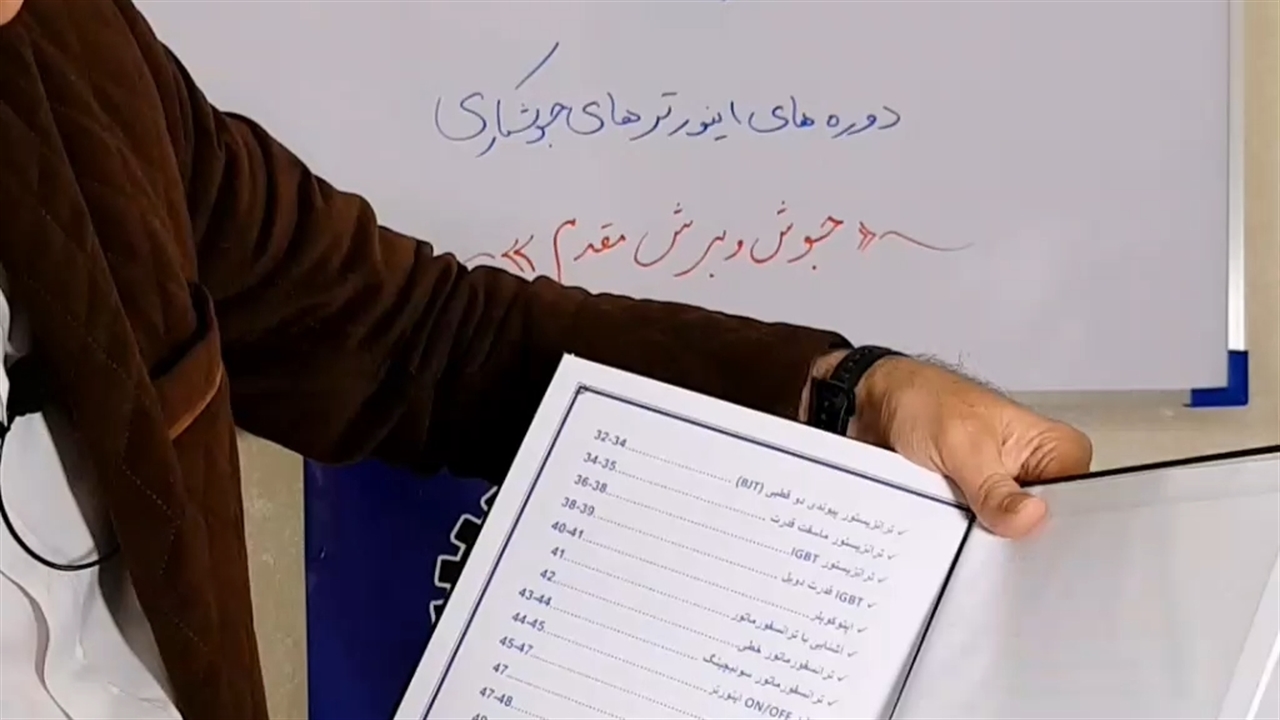 دوره های اینورترهای جوشکاری
« جوش و برش مقدم »
✓ ترانزیستور پیوندی دو قطبی (BJT) ........ 32-34
✓ ترانزیستور ماسفت قدرت ........ 34-35
✓ ترانزیستور IGBT ........ 36-38
✓ IGBT قدرت دوبل ........ 38-39
✓ اپتوکوپلر ........ 40-41
✓ آشنایی با ترانسفورماتور ........ 41
✓ ترانسفورماتور خطی ........ 42
✓ ترانسفورماتور سوئیچینگ ........ 43-44
ON/OFF اینورتر ........ 44-45
45-47
47
47-48